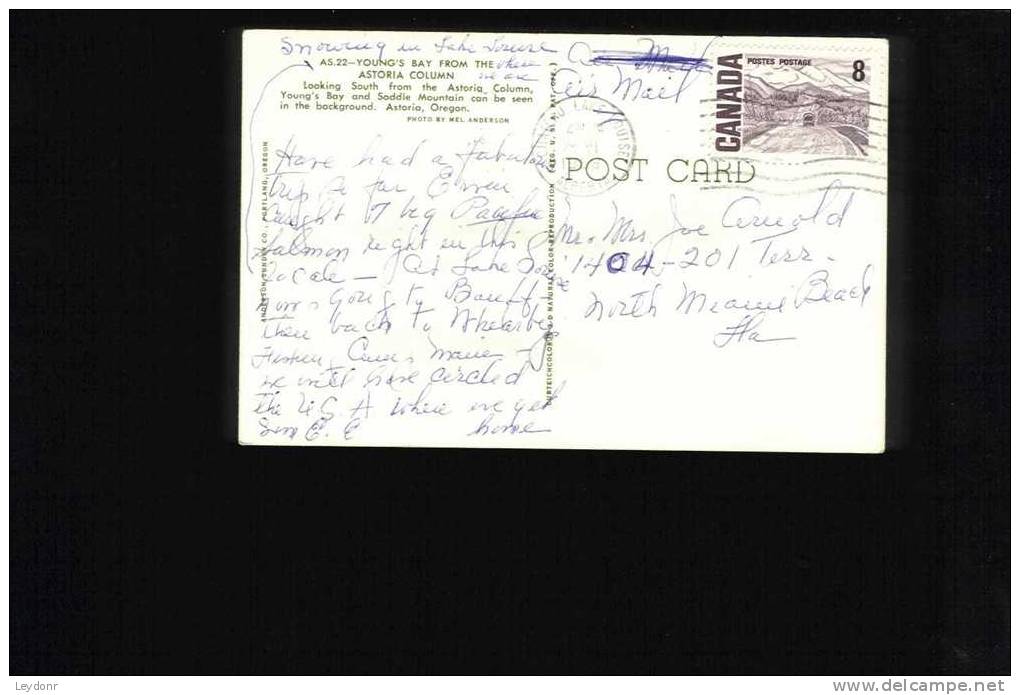 Snowing in Lake Louise
where
we are
AS.22—YOUNG'S BAY FROM THE
ASTORIA COLUMN
Looking South from the Astoria Column,
Young's Bay and Saddle Mountain can be seen
in the background. Astoria, Oregon.
PHOTO BY MEL ANDERSON
Have had a Fabulous
trip so far Erwin
Caught 7 big Pacific
Salmon right in this
Locale — At Lake Louise
now going to Banff —
then back to
Maine —
we will have circled
the U.S.A when we get
home
E. E
Air Mail
POST CARD
CANADA
POSTES POSTAGE
8
LAKE LOUISE
ALBERTA
Mr. Mrs Joe Arnold
1404-201 Terr.
North Miami Beach
Fla
ANDERSON SUNDRY CO., PORTLAND, OREGON
CURTEICHCOLOR® 3-D NATURAL COLOR REPRODUCTION (REG. U. S. A. PAT. OFF.)
© Leydonr
www.delcampe.net